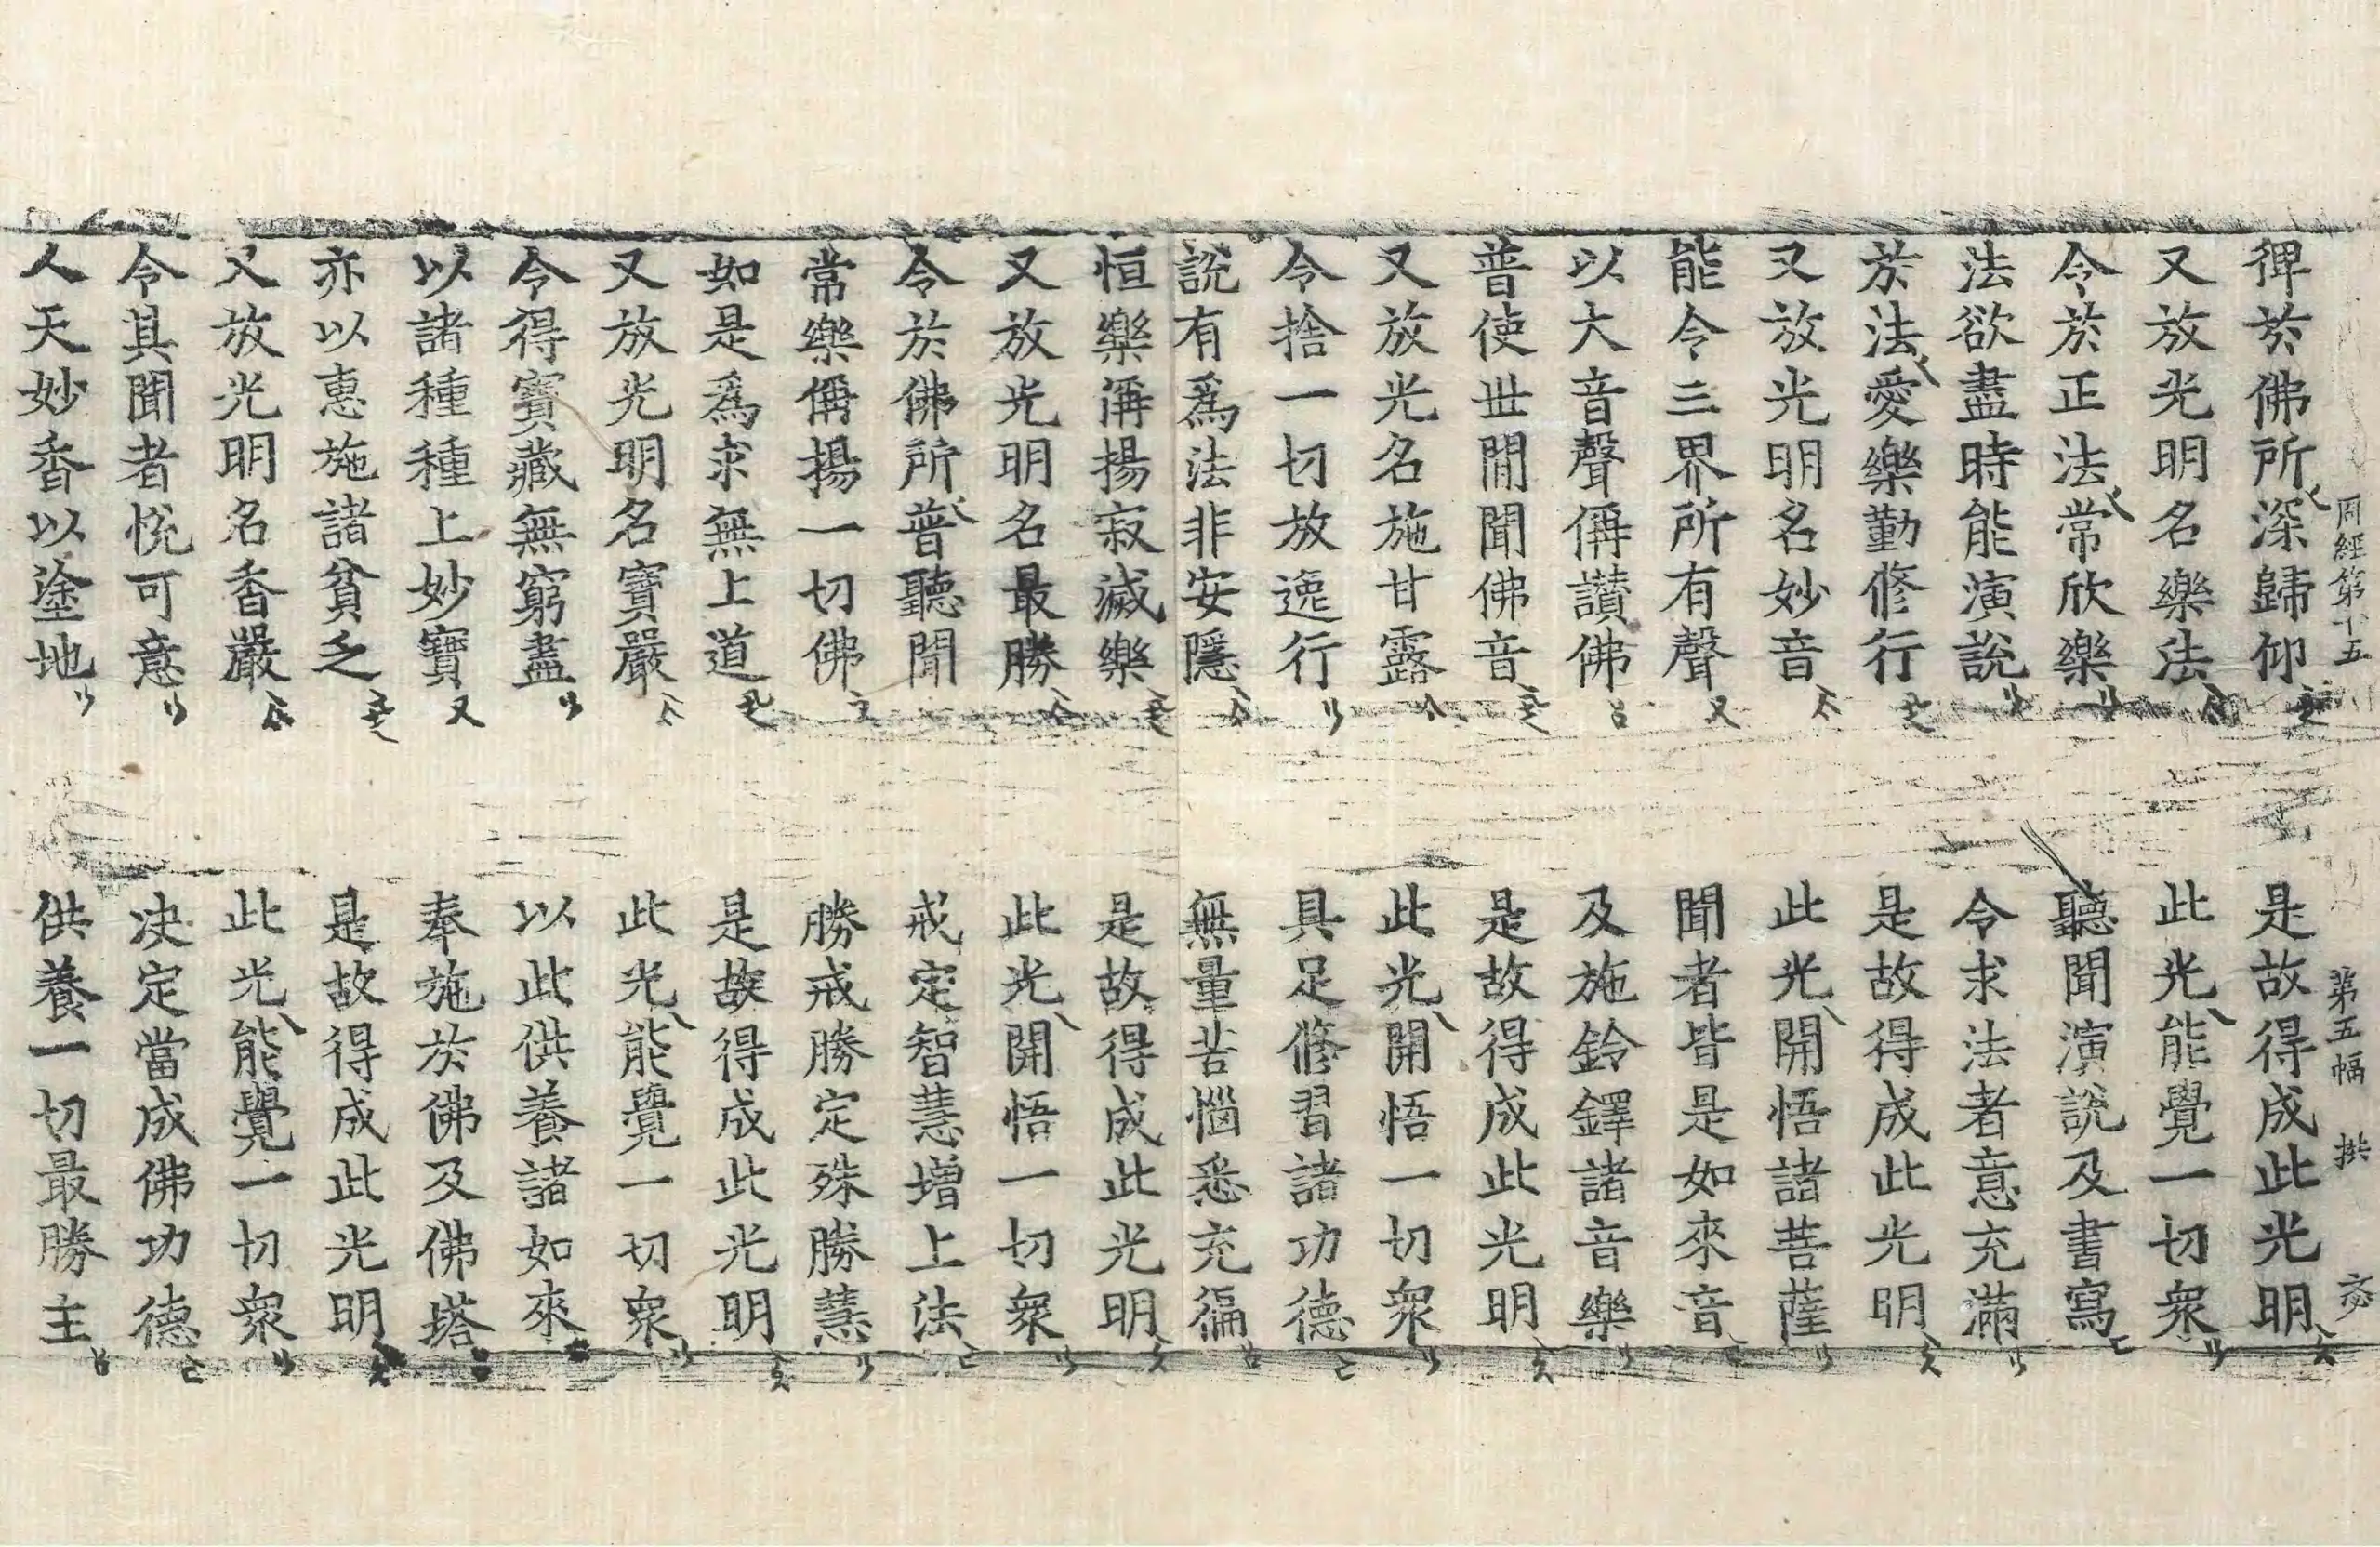 周經第十五 第五幅
俾於佛所深歸仰 是故得成此光明
又放光明名樂法 此光能覺一切衆
令於正法常欣樂 聽聞演說及書寫
法欲盡時能演說 令求法者意充滿
於法愛樂勤修行 是故得成此光明
又放光明名妙音 此光開悟諸菩薩
能令三界所有聲 聞者皆是如來音
以大音聲偁讃佛 及施鈴鐸諸音樂
普使世閒聞佛音 是故得成此光明
又放光名施甘露 此光開悟一切衆
令捨一切放逸行 具足修習諸功德
說有爲法非安隱 無量苦惱悉充徧
恒樂偁揚寂滅樂 是故得成此光明
又放光明名最勝 此光開悟一切衆
令於佛所普聽聞 戒定智慧增上法
常樂偁揚一切佛 勝戒勝定殊勝慧
如是爲求無上道 是故得成此光明
又放光明名寶嚴 此光能覺一切衆
令得寶藏無窮盡 以此供養諸如來
以諸種種上妙寶 奉施於佛及佛塔
亦以惠施諸貧乏 是故得成此光明
又放光明名香嚴 此光能覺一切衆
令其聞者悅可意 决定當成佛功德
人天妙香以塗地 供養一切最勝主